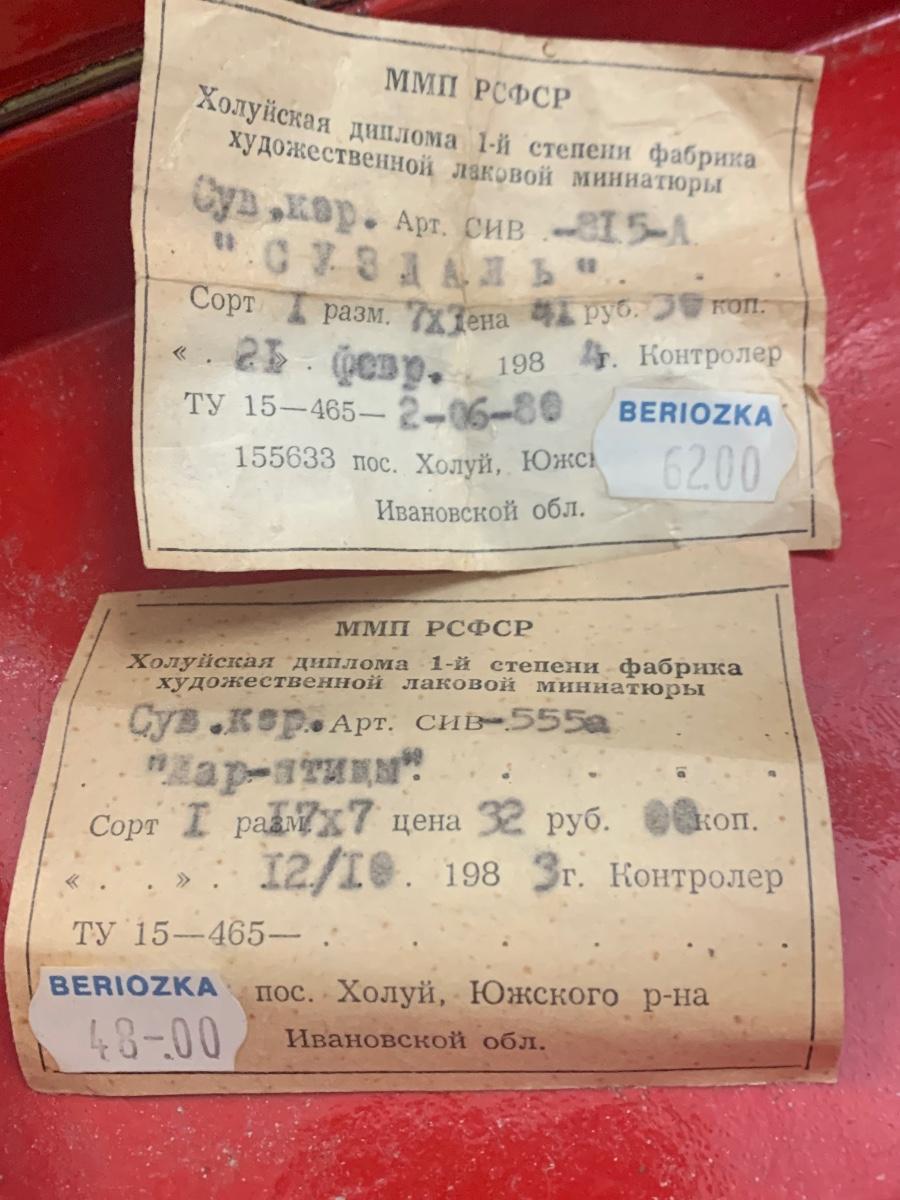 ММП РСФСР
Холуйская диплома 1-й степени фабрика
художественной лаковой миниатюры
Сув.кор. Арт. СИВ -815-А
"СУЗДАЛЬ"
Сорт I разм. 7х7 цена 41 руб. 30 коп.
« 21 » февр. 1984г. Контролер
ТУ 15—465— 2-06-80
155633 пос. Холуй,
BERIOZKA
6200
Ивановской обл.
ММП РСФСР
Холуйская диплома 1-й степени фабрика
художественной лаковой миниатюры
Сув.кор. Арт. СИВ-555а
"Жар-птицы"
Сорт I разм. 17х7 цена 32 руб. 00 коп.
« . . » . 12/10 . 1983г. Контролер
ТУ 15—465—
BERIOZKA
48-.00
пос. Холуй, Южского р-на
Ивановской обл.